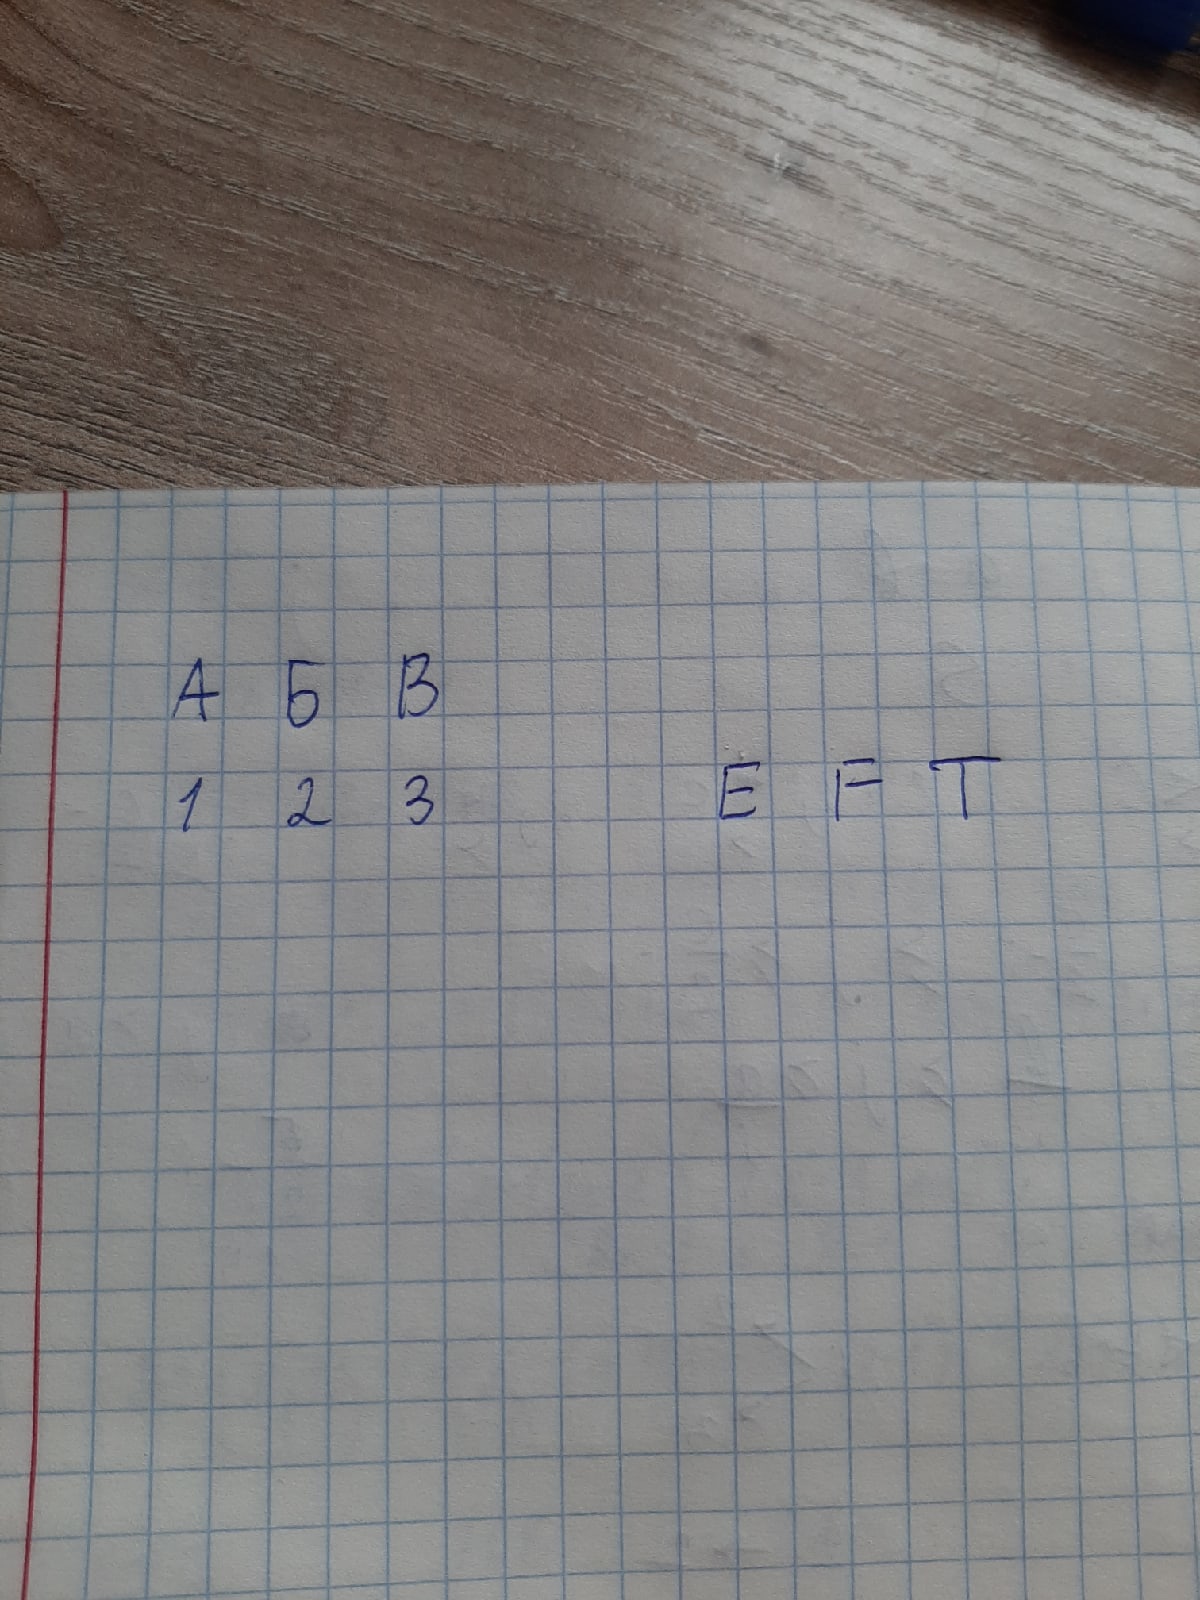 А Б В
1 2 3 E F T